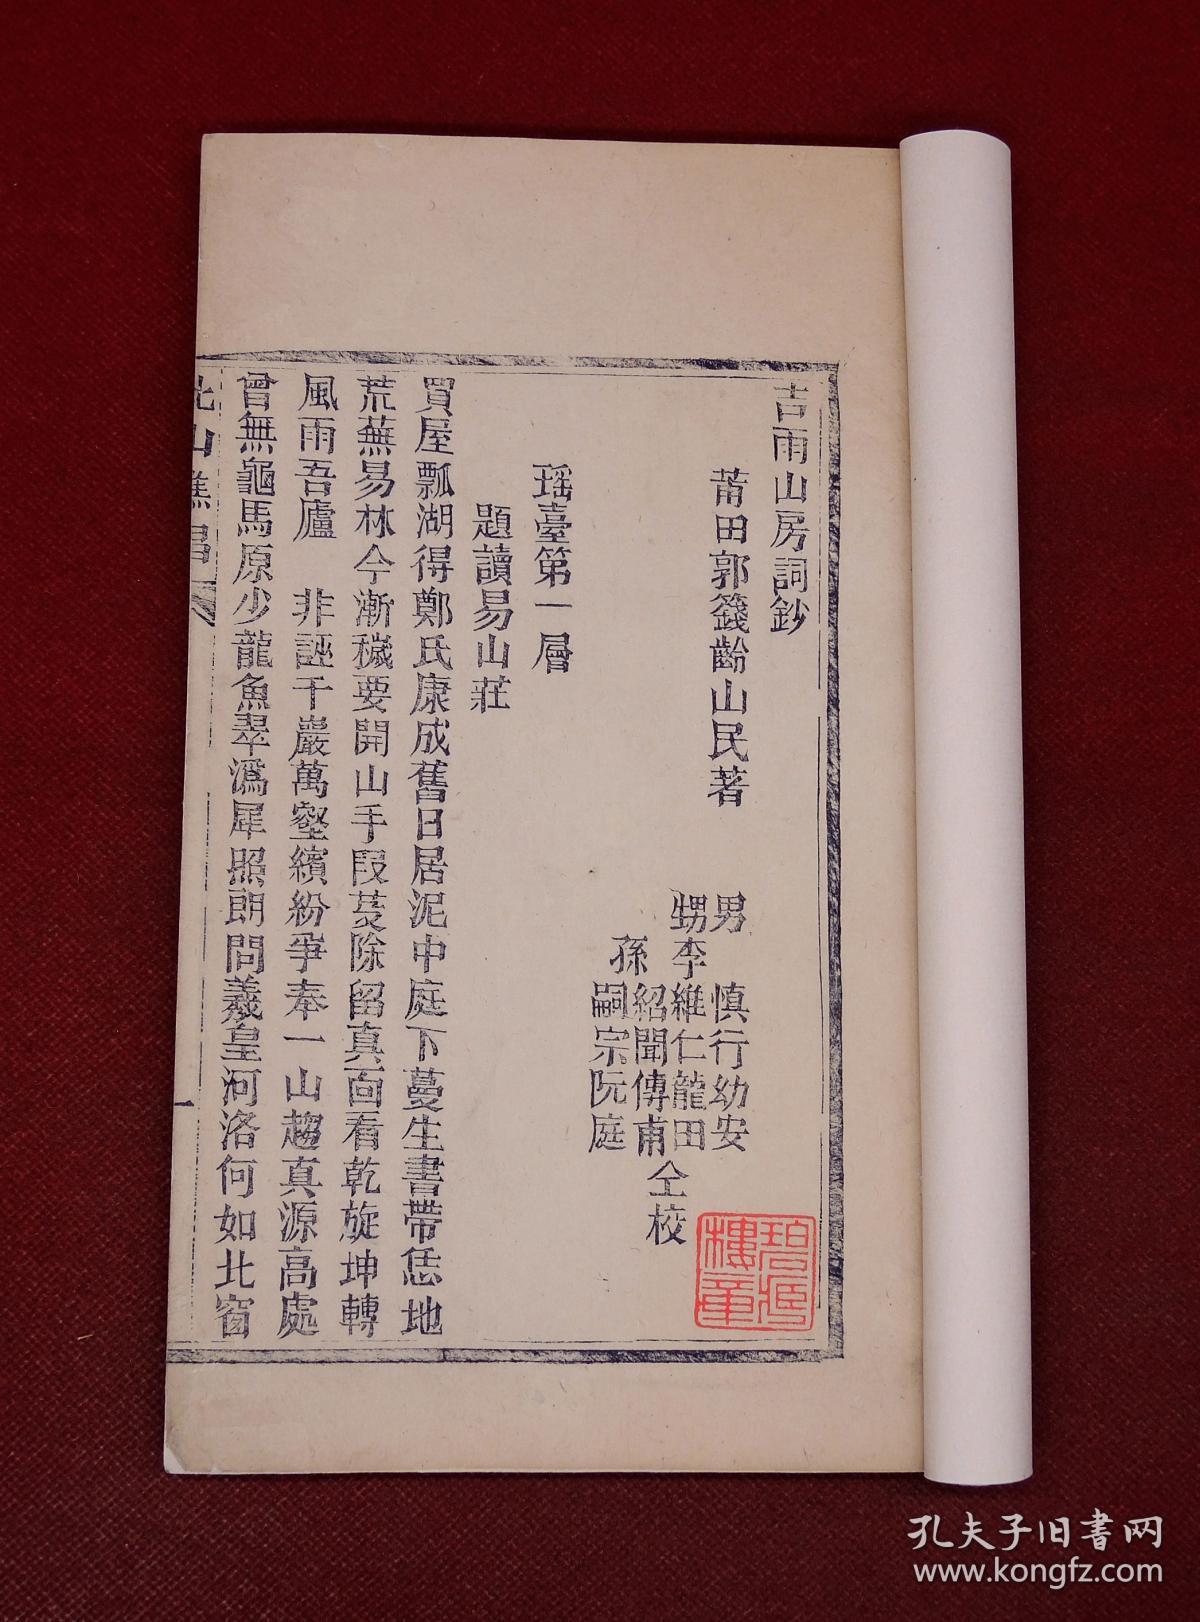 吉雨山房詞鈔
莆田郭籛齡山民著
男　慎行幼安
甥李維仁龍田
孫　紹聞傳甫
嗣宗阮庭
仝校
瑶臺第一層
題讀易山莊
買屋瓢湖得鄭氏康成舊日居泥中庭下蔓生書帶恁地
荒蕪易林今漸穢要開山手段芟除留真面看乾旋坤轉
風雨吾廬　非誣千巖萬壑繽紛爭奉一山趨真源高處
曾無龜馬原少龍魚翠潙犀照朗問羲皇河洛何如北窗
一
孔夫子旧书网
www.kongfz.com